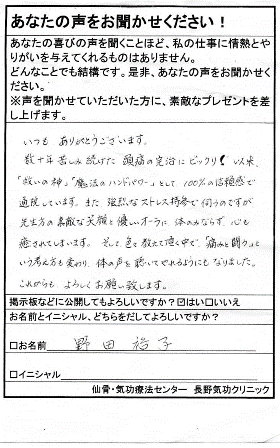 あなたの声をお聞かせください！
あなたの喜びの声を聞くことほど、私の仕事に情熱とや
りがいを与えてくれるものはありません。
どんなことでも結構です。是非、あなたの声をお聞かせく
ださい。
※声を聞かせていただいた方に、素敵なプレゼントを差
し上げます。
いつも ありがとうございます。
数十年苦しみ続けた 頭痛の完治に ビックリ！ 以来、
「救いの神」「魔法のハンドパワー」として、100%の信頼感で
通院しています。また、強烈なストレス持参で伺うのですが
先生方の素敵な笑顔と優しいオーラに 体のみならず、心も
癒されてしまいます。そして、色々教えて頂く中で、「痛みと闘う」と
いう考え方も変わり、体の声を聴いてやれるようにもなりました。
これからも よろしくお願い致します。
掲示板などに公開してもよろしいですか？☑はい□いいえ
お名前とイニシャル、どちらを出してよろしいですか？
□お名前 野田 裕子
□イニシャル
仙骨・気功療法センター 長野気功クリニック